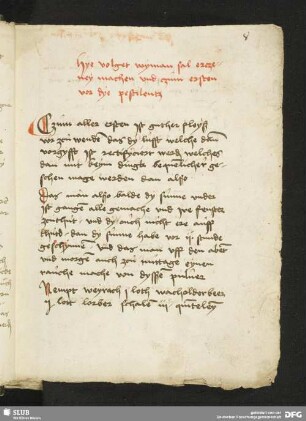 Hye volget wyman sal ercze
ney machen und czum ersten
vor dye pestilentz
Czum aller ersten ist guther fleyß
vor zcu wenden das dy lufft welche dan
vorgyfft ist rectificyret werd welches
dan mit keynem dinge bequemlicher ge
schen mage werden dan also
Das man also balde dy sunne under
ist gangen alle gemache und ire fenster
zcuthut und dy auch nicht ere auff
thut dan dy sunne habe vor ii stunde
geschynnen Und das man uff den abent
und morgen auch zcu mittage eynen
rauche mache von dyssem pulver
Nempt weyrach i loth wacholderbeer
i lott lorber schalen iii quinteleyn
SLUB
DFG